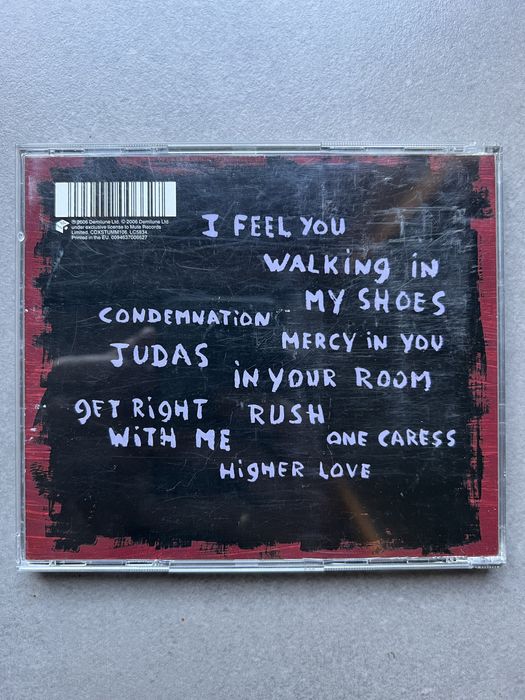 ℗ 2006 Demilune Ltd. © 2006 Demilune Ltd
under exclusive license to Mute Records
Limited. CDXSTUMM106. LC5834.
Printed in the EU. 0094637000527
I FEEL YOU
WALKING iN
MY SHOES
CONDEMNATiON
MERCY iN YOU
JUDAS
iN YOUR ROOM
gET RigHT
WiTH ME
RUSH
ONE CARESS
HigHER LOVE